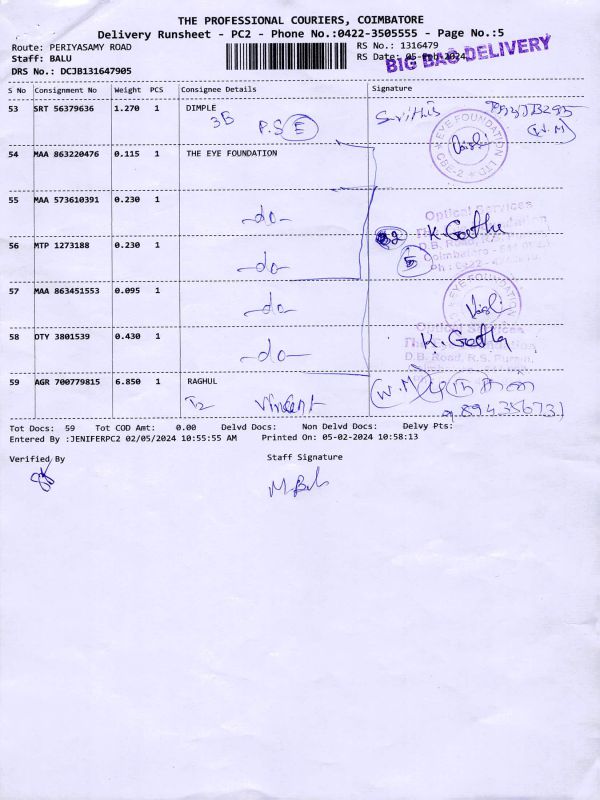 THE PROFESSIONAL COURIERS, COIMBATORE
Delivery Runsheet - PC2 - Phone No.:0422-3505555 - Page No.:5
Route: PERIYASAMY ROAD
RS No.: 1316479
Staff: BALU
RS Date: 05-Feb-2024
BIG BAG DELIVERY
DRS No.: DCJB131647905
S No Consignment No Weight PCS Consignee Details Signature
53 SRT 56379636 1.270 1 DIMPLE
3B P.S E
(W.M)
EYE FOUNDATION LTD CBE-2
54 MAA 863220476 0.115 1 THE EYE FOUNDATION
55 MAA 573610391 0.230 1
-do-
Optical Services
K. Geetha
56 MTP 1273188 0.230 1
-do-
57 MAA 863451553 0.095 1
-do-
EYE FOUNDATION
58 DTY 3801539 0.430 1
-do-
Optical Services
K. Geetha
D.B. Road, R.S. Puram,
59 AGR 700779815 6.850 1 RAGHUL
Vincent
W.M
Tot Docs: 59 Tot COD Amt: 0.00 Delvd Docs: Non Delvd Docs: Delvy Pts:
Entered By :JENIFERPC2 02/05/2024 10:55:55 AM Printed On: 05-02-2024 10:58:13
Verified By
Staff Signature